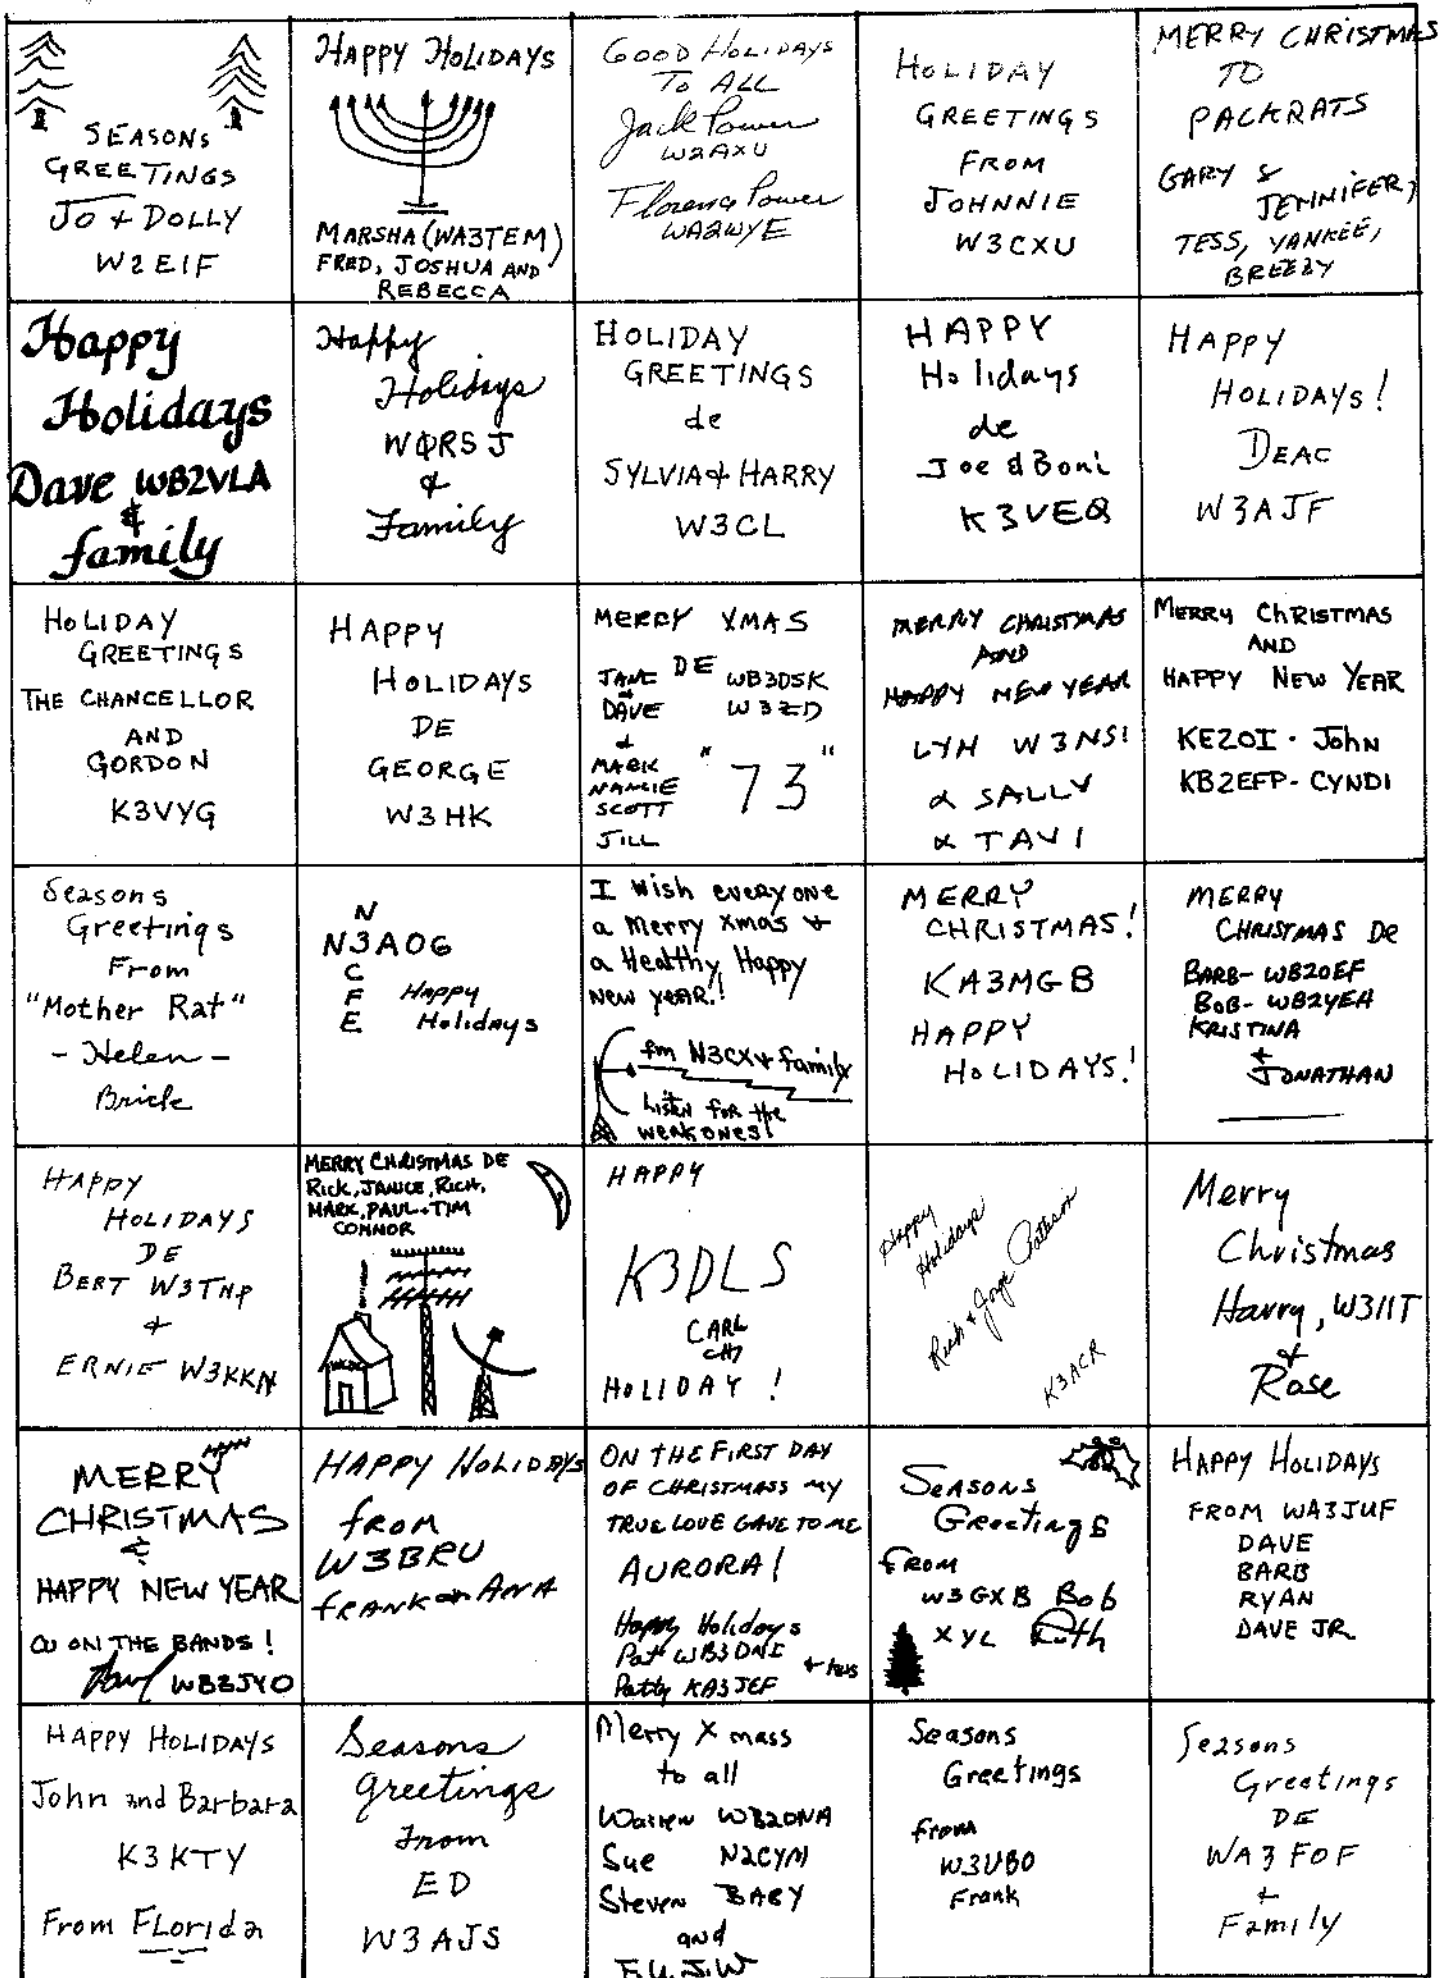 SEASONS
GREETINGS
JO + DOLLY
W2EIF
HAPPY HOLIDAYS
MARSHA (WA3TEM)
FRED, JOSHUA AND
REBECCA
GOOD HOLIDAYS
TO ALL
Jack Power
W2AXU
Florence Power
WA2WYE
HOLIDAY
GREETINGS
FROM
JOHNNIE
W3CXU
MERRY CHRISTMAS
TO
PACKRATS
GARY &
JENNIFER,
TESS, YANKEE,
BREEZY
Happy
Holidays
Dave WB2VLA
&
family
Happy
Holidays
WØRSJ
&
Family
HOLIDAY
GREETINGS
de
SYLVIA & HARRY
W3CL
HAPPY
Holidays
de
Joe & Boni
K3VEQ
HAPPY
HOLIDAYS!
DEAC
W3AJF
HOLIDAY
GREETINGS
THE CHANCELLOR
AND
GORDON
K3VYG
HAPPY
HOLIDAYS
DE
GEORGE
W3HK
MERRY XMAS
DE
JANE WB3DSK
&
DAVE W3ZD
&
MARK
NANCIE
SCOTT
JILL
"73"
MERRY CHRISTMAS
AND
HAPPY NEW YEAR
LYN W3NSI
& SALLY
& TAVI
MERRY CHRISTMAS
AND
HAPPY NEW YEAR
KE2OI - JOHN
KB2EFP - CYNDI
Seasons
Greetings
From
"Mother Rat"
- Helen -
Brick
N
N3AOG
C
F
E
Happy
Holidays
I wish everyone
a Merry Xmas &
a Healthy, Happy
New YEAR!!
fm N3CX & family
Listen for the
weak ones!
MERRY
CHRISTMAS!
KA3MGB
HAPPY
HOLIDAYS!
MERRY
CHRISTMAS DE
BARB- WB2OEF
BOB- WB2YEH
KRISTINA
+
JONATHAN
HAPPY
HOLIDAYS
DE
BERT W3TNP
+
ERNIE W3KKN
MERRY CHRISTMAS DE
RICK, JANICE, RICH,
MARK, PAUL + TIM
CONNOR
HAPPY
K3DLS
CARL
HOLIDAY!
Happy
Holidays
Rick & Joyce
K3ACR
Merry
Christmas
Harry, W3IIT
&
Rose
MERRY
CHRISTMAS
&
HAPPY NEW YEAR
CU ON THE BANDS!
WB3JYO
HAPPY HOLIDAYS
from
W3BRU
FRANK an ANA
ON THE FIRST DAY
OF CHRISTMASS MY
TRUE LOVE GAVE TO ME
AURORA!
Happy Holidays
Pat WB3DNI
Patty KA3JEF
SEASONS
Greetings
FROM
W3GXB Bob
XYL Ruth
HAPPY HOLIDAYS
FROM WA3JUF
DAVE
BARB
RYAN
DAVE JR.
HAPPY HOLIDAYS
John and Barbara
K3KTY
From FLorida
Seasons
Greetings
From
ED
W3AJS
Merry Xmass
to all
Warren WB2ONA
Sue N2CYM
Steven BABY
and
Seasons
Greetings
from
W3UBO
Frank
Seasons
Greetings
DE
WA3FOF
+
Family